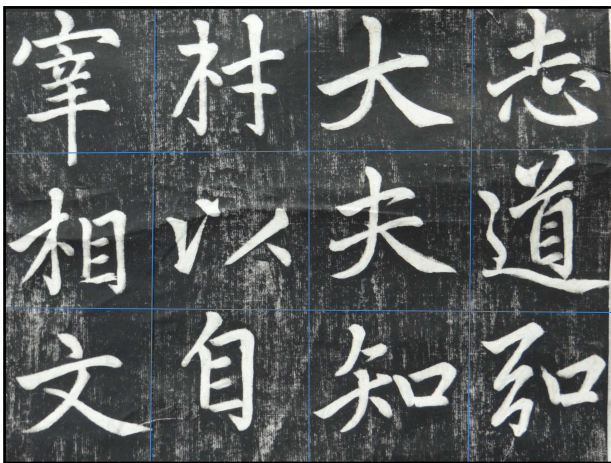 志道弘
大夫知
村以自
宰相文